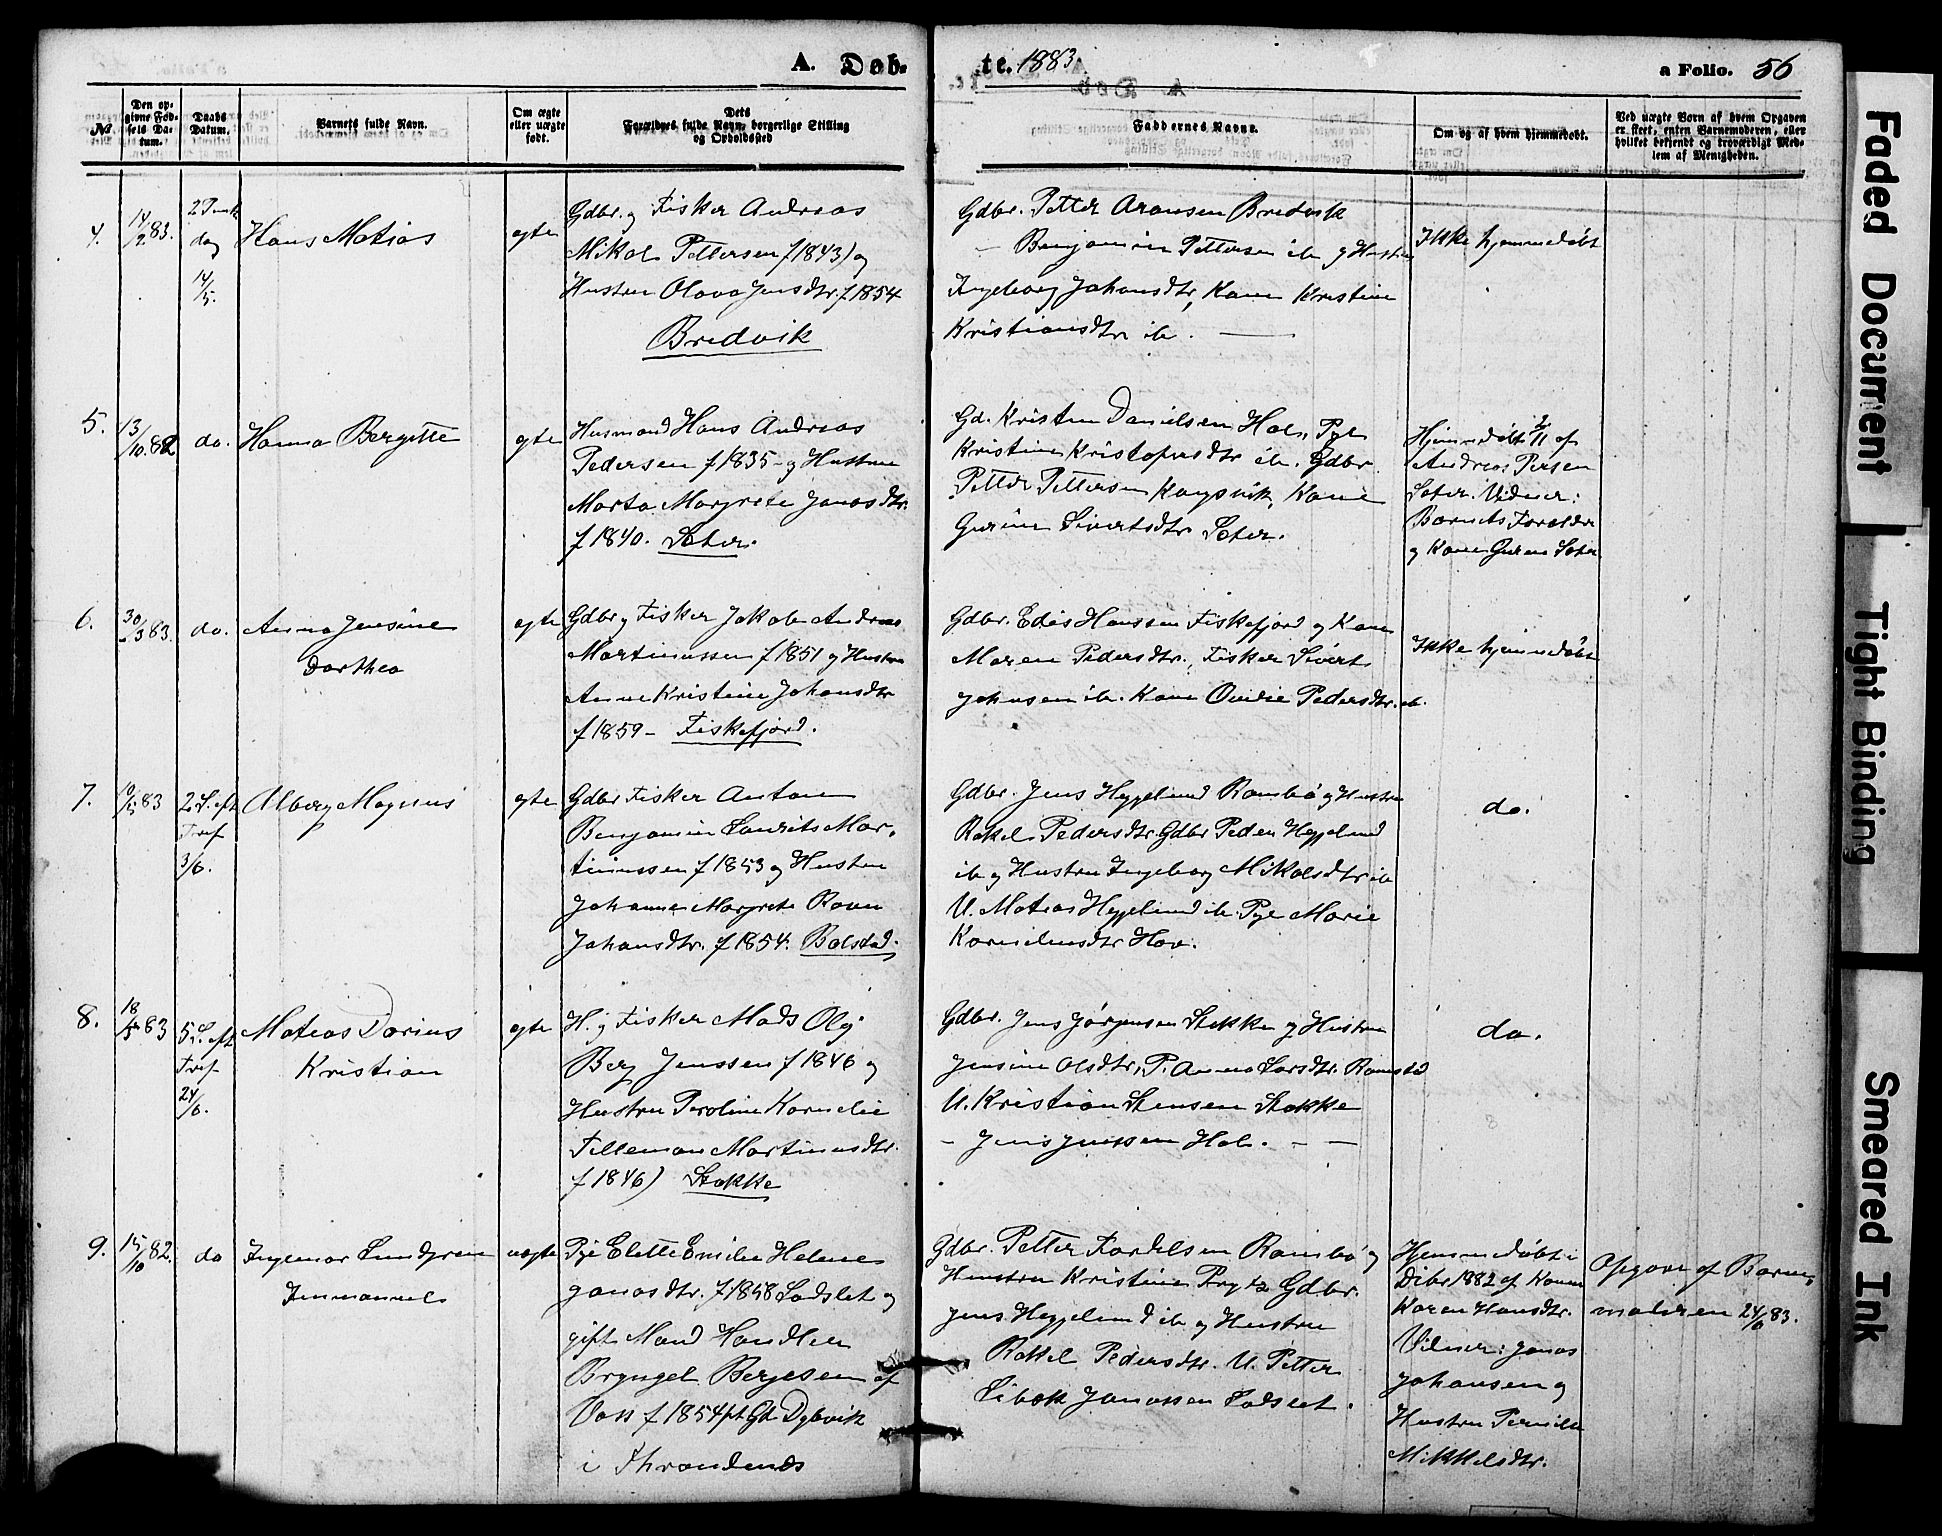 A. Døb-
te. 1883.
a Folio. 56
No.
Den op-
givne Fød-
sels Da-
tum.
Daabs
Datum.
Barnets fulde Navn.
Om ægte
eller uægte
født.
Dets
Forældres fulde Navn, borgerlige Stilling
og Opholdssted
Faddernes Navne.
Om og af hvem hjemmedøbt.
Ved uægte Børn af hvem Opgaven
er skeet, enten Barnemoderen, eller
hvilket bekjendt og troværdigt Med-
lem af Menigheden.
4.
14/2 83.
dag
14/5.
Hans Matias
egte
Gdbr. og Fisker Andreas
Mikal Pettersen f 1843) og
Hustru Olava Jensdtr. f 1854
Bredvik
Gdbr. Petter Aronsen Bredvik
- Benjamin Pettersen ib og Hustru
Ingeborg Johansdtr, Kone Kristine
Kristiansdtr ib.
Ikke hjemmedøbt
5.
13/10. 82
do.
Hanna Bergitte
egte
Husmand Hans Andreas
Pedersen f 1835 - og Hustru
Marta Margrete Jonasdtr.
f 1840. Sæter.
Gd. Kristen Danielsen Hol, Pge
Kristine Kristofersdtr ib. Gdbr.
Petter Pettersen Kongsvik, Kone
Gurine Sivertsdtr Sæter.
Hjemmedøbt /11 af
Andreas Persen
Sæter. Vidner:
Barnets Forældre
og Kone Guren Sæter
6.
30/3 83.
do.
Anna Jensine
Dorthea
egte
Gdbr og Fisker Jakob Andreas
Martinussen f 1851 og Hustru
Anne Kristine Johansdtr
f 1859 - Fiskefjord.
Gdbr. Edis Hanssen Fiskefjord og Kone
Maren Pedersdtr., Fisker Sivert
Johnsen ib. Kone Ovidie Pedersdtr. ib.
Ikke hjemmedøbt
7.
83
2 S. eft
Tref
3/6.
Alberg Magnus
egte
Gdbr Fisker Anton
Benjamin Laurits Mar-
tinussen f 1853 og Hustru
Johanna Margrete Ravn
Johansdtr. f 1854. Balstad.
Gdbr. Jens Heggelund Ramsbø og Hustru
Rakel Pedersdtr. Gdbr Peder Heggelund
ib og Hustru Ingeborg Mikalsdtr ib
U. Matias Heggelund ib. Pge Marie
Korneliusdtr Hov.
do.
8.
18/5 83
5 S. eft
Tref
24/6.
Matias Darius
Kristian
egte
H. og Fisker Mads Olaj
Berg Jenssen f 1846 og
Hustru Peroline Kornelie
Tilleman Martinusdtr.
f 1846) Stokke
Gdbr. Jens Jørgensen Stokke og Hustru
Jensine Olsdtr, P. Anna Larsdtr. Ramstad
U. Kristian Stensen Stokke
- Jens Jenssen Hol. - -
do.
9.
15/10 82.
do
Ingemar Lundgren
Immanuel
uegte
Pge Elette Emilie Helene
Jonasdtr. f 1858 Lødslet og
gift Mand Handler
Bryngel Berjesen af
Voss f 1854 pt Gd Dybvik
i Throndenes
Gdbr. Petter Fordelsen Ramsbø og
Hustru Kristine Prytz Gdbr.
Jens Heggelund ib og Hustru
Rakel Pedersdtr. U. Petter
Sibok Jonassen Lødslet.
Hjemmedøbt i
Dbr 1882 af Konen
Karen Hansdtr.
Vidner: Jonas
Johansen og
Hustru Pernille
Mikkelsdtr.
Opgave af Barne-
moderen 24/6 83.
Faded Document
Tight Binding
Smeared Ink